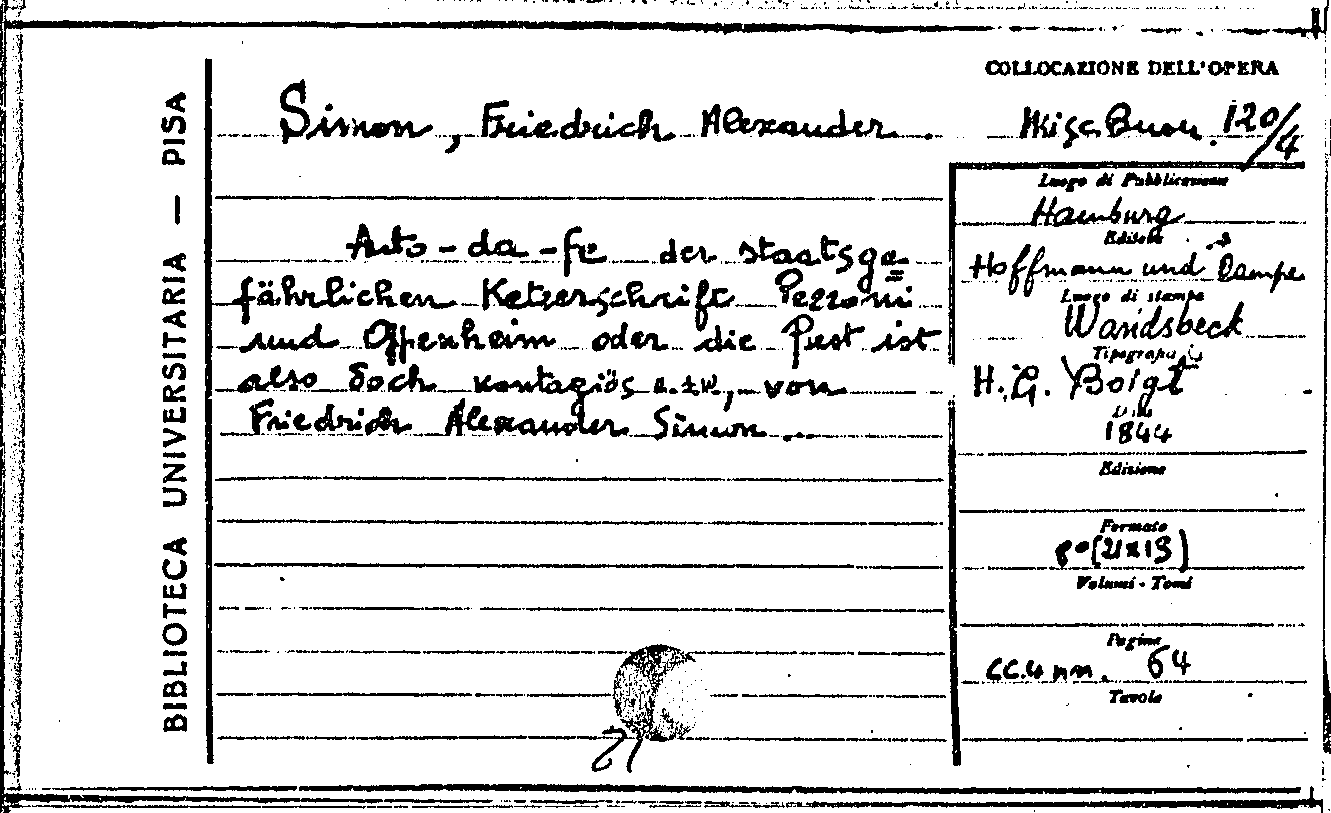 COLLOCAZIONE DELL'OPERA
Simon, Friedrich Alexander.
Misc. Buon. 120/4
BIBLIOTECA UNIVERSITARIA — PISA
Auto-da-fe der staatsge=
fährlichen Ketzerschrift Pezzoni
und Oppenheim oder die Pest ist
also doch kontagiös u.s.w., von
Friedrich Alexander Simon...
Luogo di Pubblicazione
Hamburg
Editore
Hoffmann und Campe
Luogo di stampa
Wandsbeck
Tipografia
H. G. Voigt
Data
1844
Edizione
Formato
8° (21x13)
Volumi - Tomi
Pagine
cc.4 nn. 64
Tavole